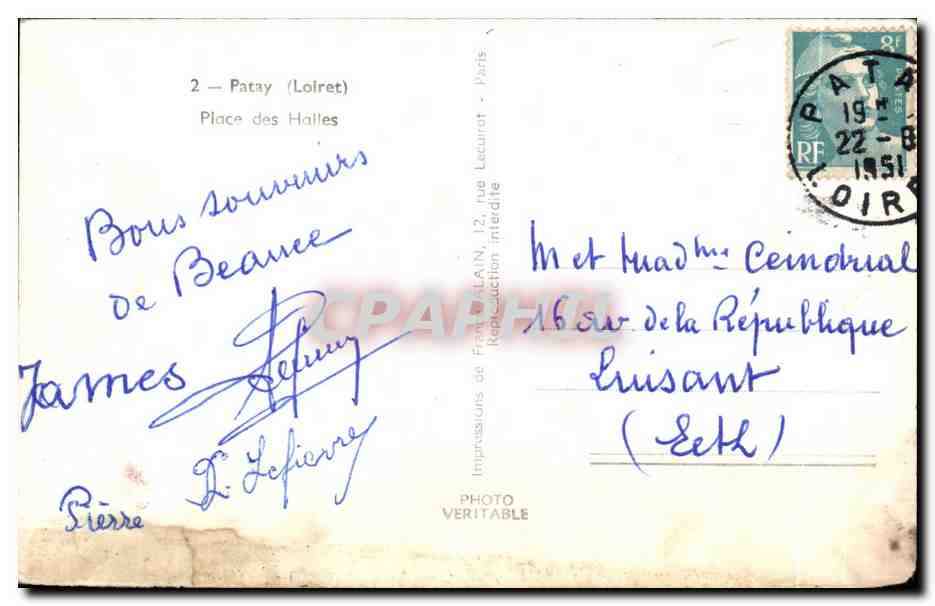 2 — Patay (Loiret)
Place des Halles
Bons souvenirs
de Beauce
James
D. Lefierre
Pierre
Impressions de Franc ALAIN, 12, rue Lecuirot - Paris
Reproduction interdite
PHOTO
VERITABLE
CPARHIL
8f
POSTES
RF
PATA
19 H
22 - 8
1951
LOIRE
M et Mad me Ceindrial
16 av. de la République
Luisant
(E et L)